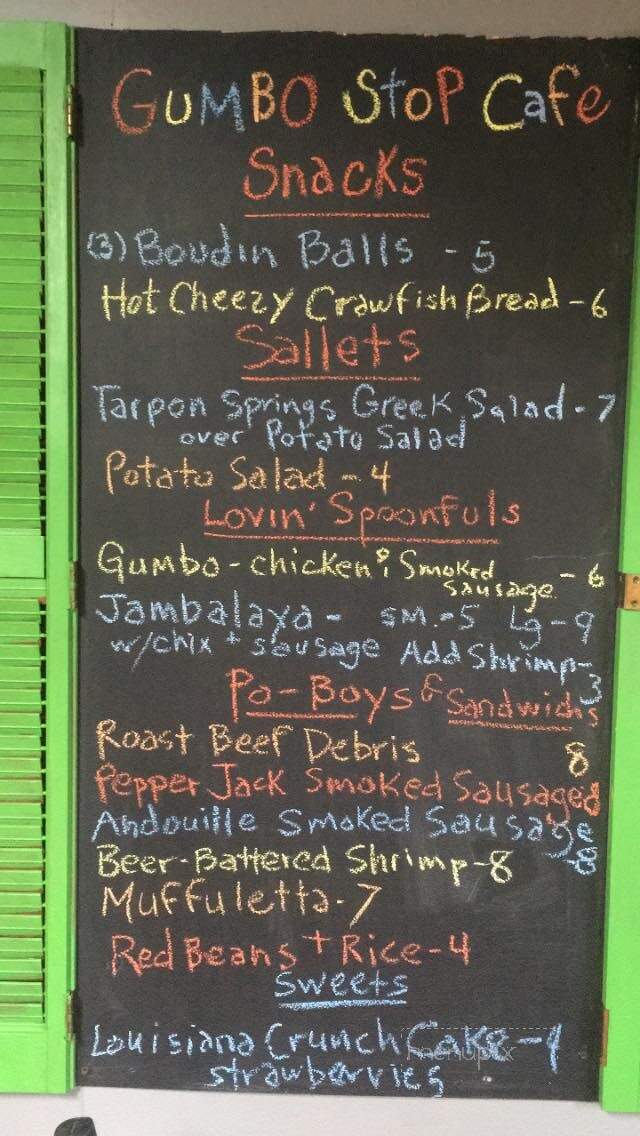 GUMBO StoP Cafe
Snacks
(3) Boudin Balls - 5
Hot Cheezy Crawfish Bread - 6
Sallets
Tarpon Springs Greek Salad - 7
over Potato Salad
Potato Salad - 4
Lovin' Spoonfuls
Gumbo - chicken & Smoked sausage - 6
Jambalaya - sm. - 5 Lg - 9
w/chix + sausage Add Shrimp - 3
Po-Boys & Sandwichs
Roast Beef Debris 8
Pepper Jack Smoked Sausage 8
Andouille Smoked Sausage - 8
Beer-Battered Shrimp - 8
Muffuletta - 7
Red Beans + Rice - 4
Sweets
Louisiana Crunch Cake - 4
strawberries
menupix